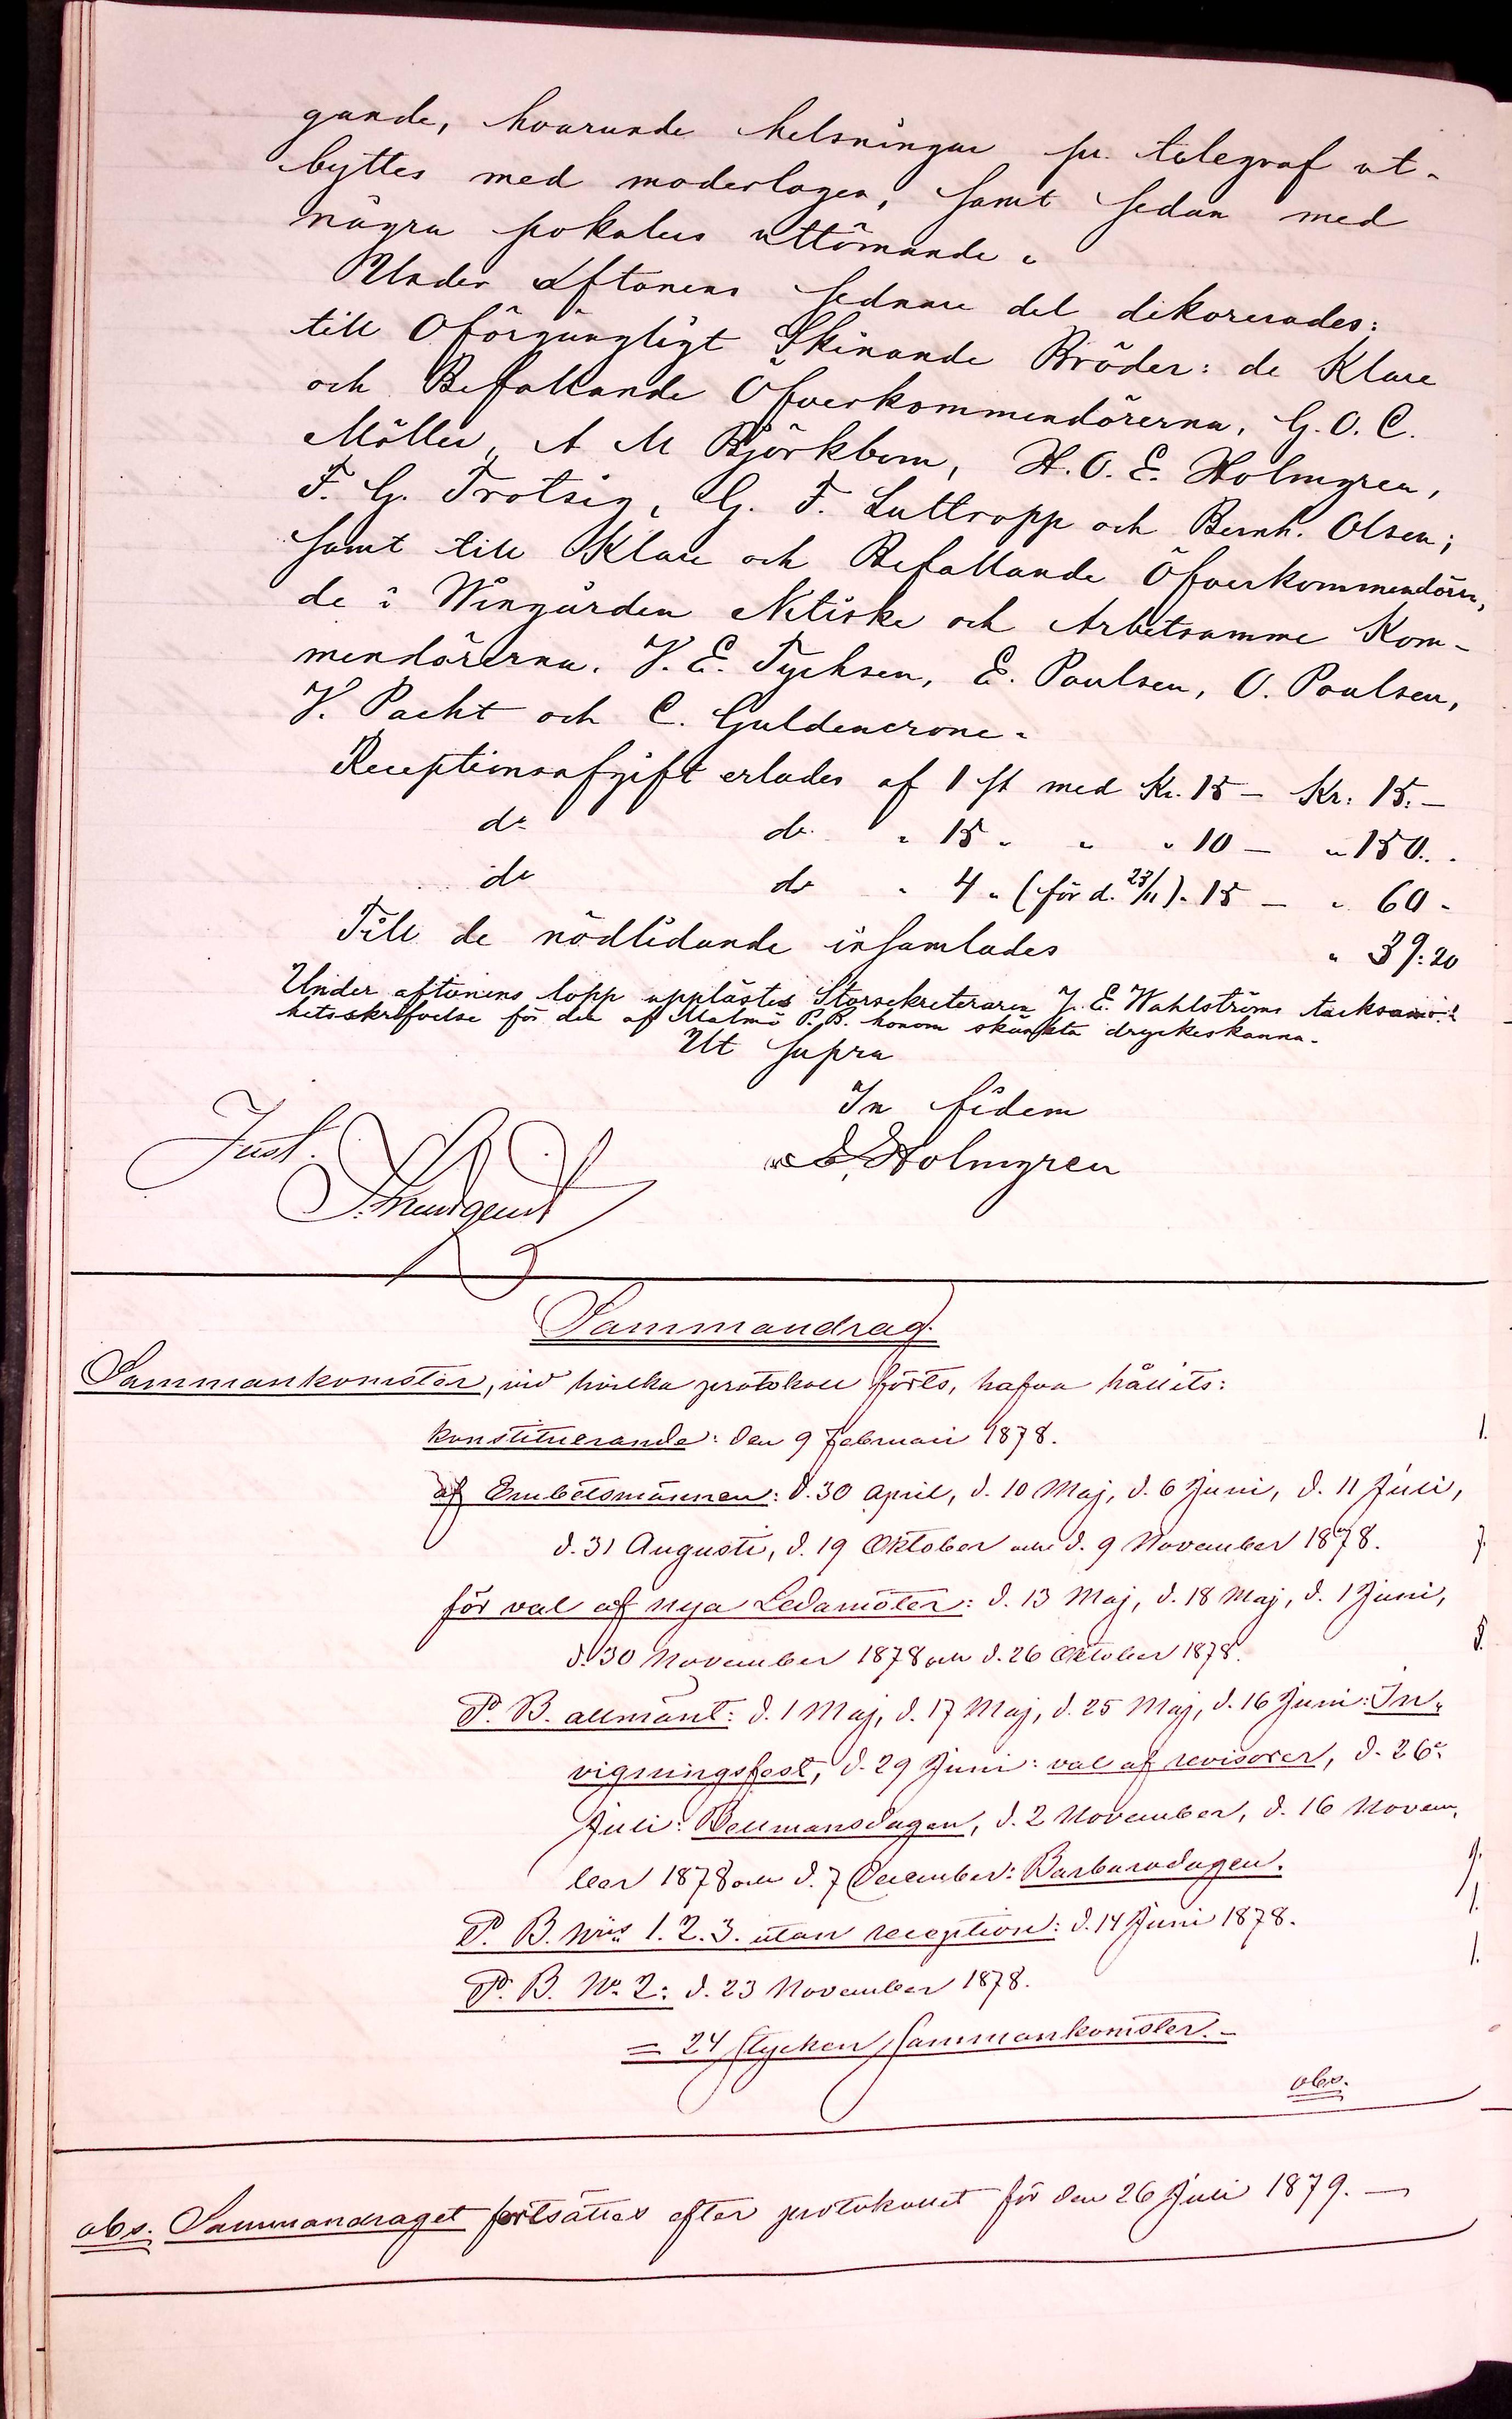 gande, hvarunde helsningar pr. telegraf ut-
byttes med moderlogen, samt sedan med
några pokalers uttömande.
Under aftonens sednare del dekorerades:
till Oförgängligt Skinande Bröder: de Klare
och Befallande Öfverkommendörerna, G. O. C.
Möller, A M Björkbom, H. O. E. Holmgren,
F. G. Trotzig, G. F. Luttropp och Bernh. Olsen;
samt till Klare och Befallande Öfverkommendörer,
de i Wingården Nitiske och Arbetsamme Kom-
mendörerna. V. E. Tychsen, E. Poulsen, O. Poulsen,
V. Pacht och C. Guldencrone.
Receptionsafgift erlades af 1 st med Kr. 15 — Kr: 15. —
do do " 15 " " " 10 — " 150. .
do do " 4 " (för d. 23/11) " 15 — " 60 -
Till de nödlidande insamlades " 39: 20
Under aftonens lopp upplästes Storsekreteraren J. E. Wahlströms tacksam-
hetsskrifvelse för den af Malmö P. B. honom skänkta dryckeskanna.
Ut supra
In fidem
Holmgren
Just.
Sammandrag.
Sammankomster, vid hvilka protokoll förts, hafva hållits:
konstituerande: den 9 Februari 1878. 1.
af Embetsmännen: d. 30 April, d. 10 Maj, d. 6 Juni, d. 11 Juli,
d. 31 Augusti, d. 19 Oktober och d. 9 November 1878. 7.
för val af nya Ledamöter: d. 13 Maj, d. 18 Maj, d. 1 Juni,
d. 30 November 1878 och d. 26 Oktober 1878. 5.
P. B. allmänt: d. 1 Maj, d. 17 Maj, d. 25 Maj, d. 16 Juni: In-
vigningsfest, d. 29 Juni: val af revisorer, d. 26
Juli: Bellmansdagen, d. 2 November, d. 16 Novem-
ber 1878 och d. 7 December: Barbarodagen. 9.
P. B. N:is 1. 2. 3. utan reception: d. 14 Juni 1878. 1.
P. B. No 2: d. 23 November 1878. 1.
= 24 stycken sammankomster. —
obs.
obs. Sammandraget fortsättes efter protokollet för den 26 Juli 1879. —